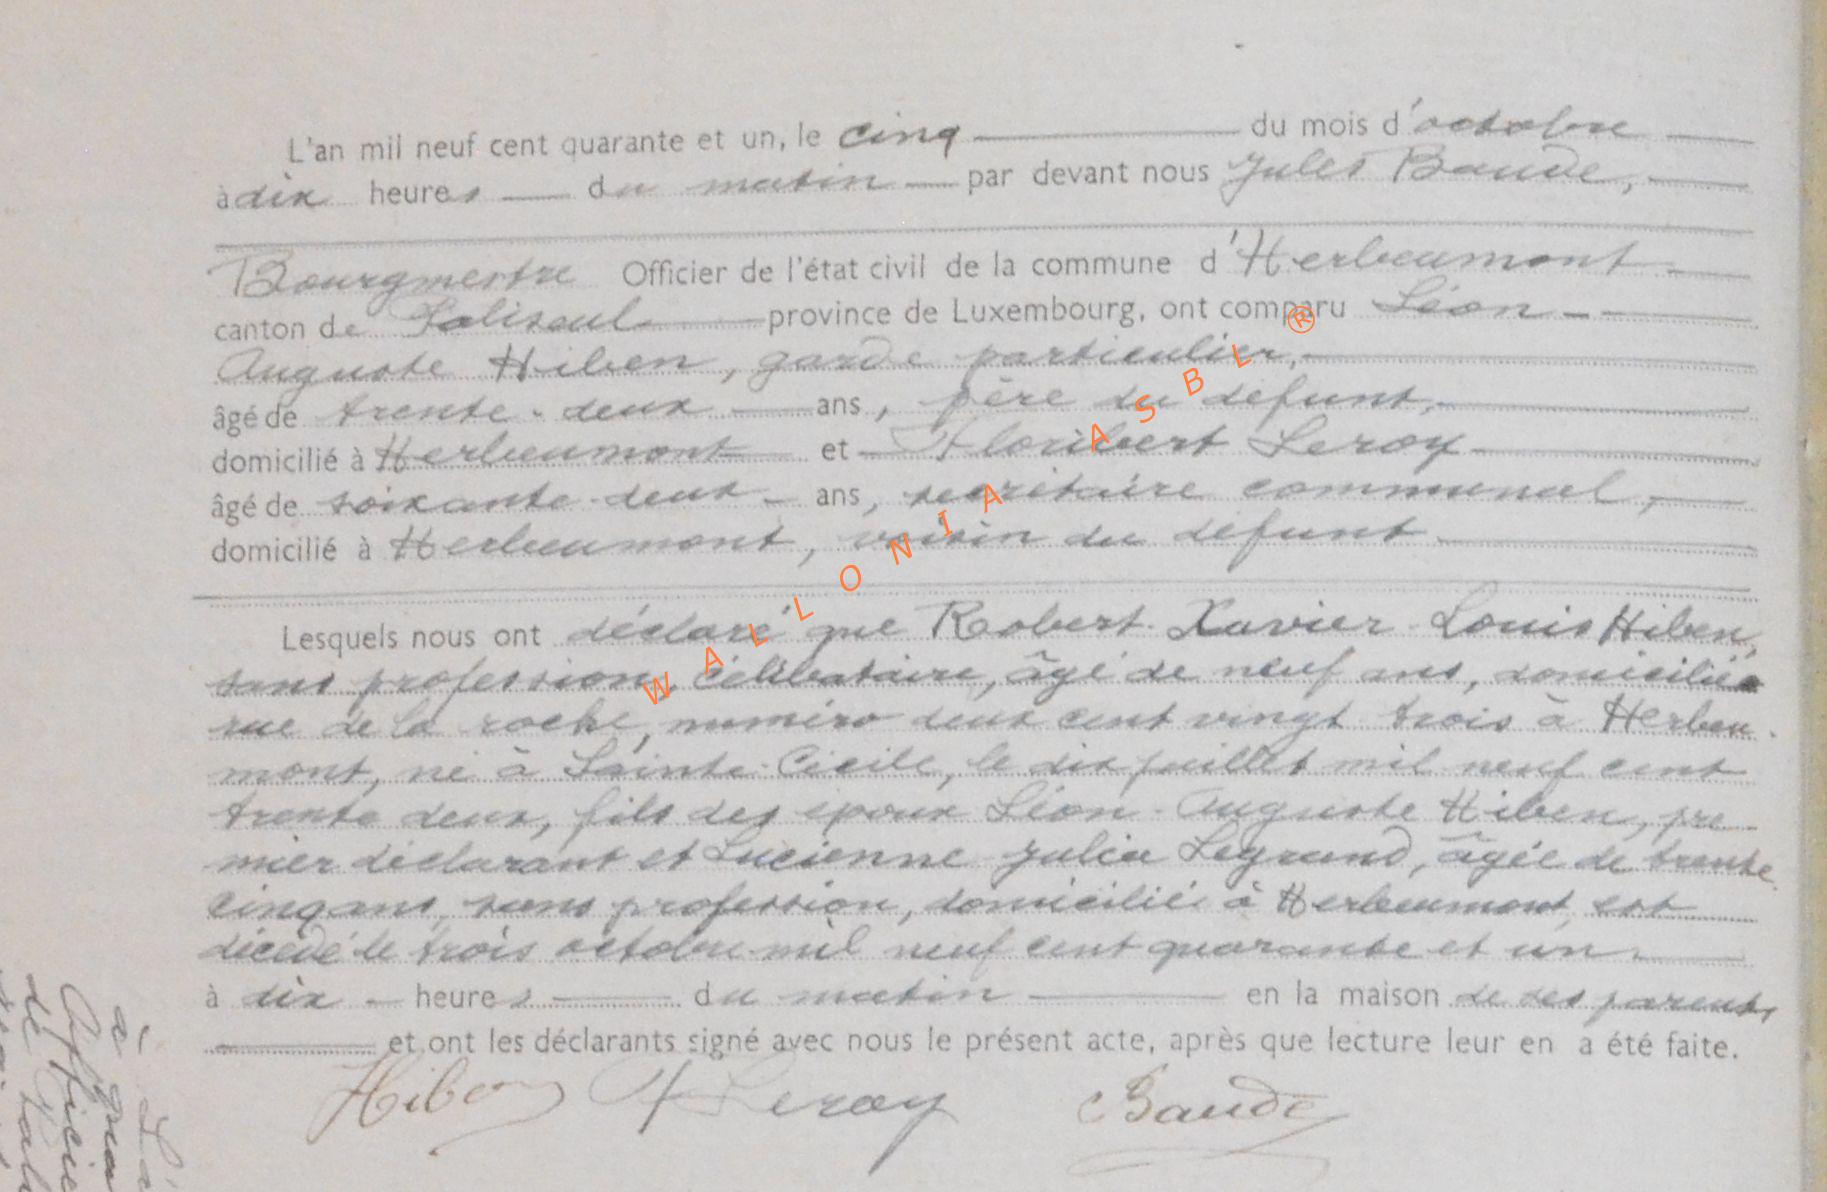 L'an mil neuf cent quarante et un, le cinq du mois d'octobre
à dix heures du matin par devant nous Jules Baude,
Bourgmestre Officier de l'état civil de la commune d'Herbeumont
canton de Paliseul province de Luxembourg, ont comparu Léon
Auguste Hiben, garde particulier,
âgé de trente-deux ans, père du défunt,
domicilié à Herbeumont et Floribert Leroy
âgé de soixante-deux ans, secrétaire communal,
domicilié à Herbeumont, voisin du défunt
Lesquels nous ont déclaré que Robert Xavier Louis Hiben,
sans profession, célibataire, âgé de neuf ans, domicilié
rue de la roche, numéro deux cent vingt trois à Herbeu-
mont, né à Sainte-Cécile, le dix juillet mil neuf cent
trente deux, fils des époux Léon-Auguste Hiben, pre-
mier déclarant et Lucienne Julia Legrand, âgée de trente
cinq ans, sans profession, domiciliée à Herbeumont, est
décédé le trois octobre mil neuf cent quarante et un
à dix heures du matin en la maison de ses parents
et ont les déclarants signé avec nous le présent acte, après que lecture leur en a été faite.
Hiben F Leroy Baude
WALLONIA ASBL ®